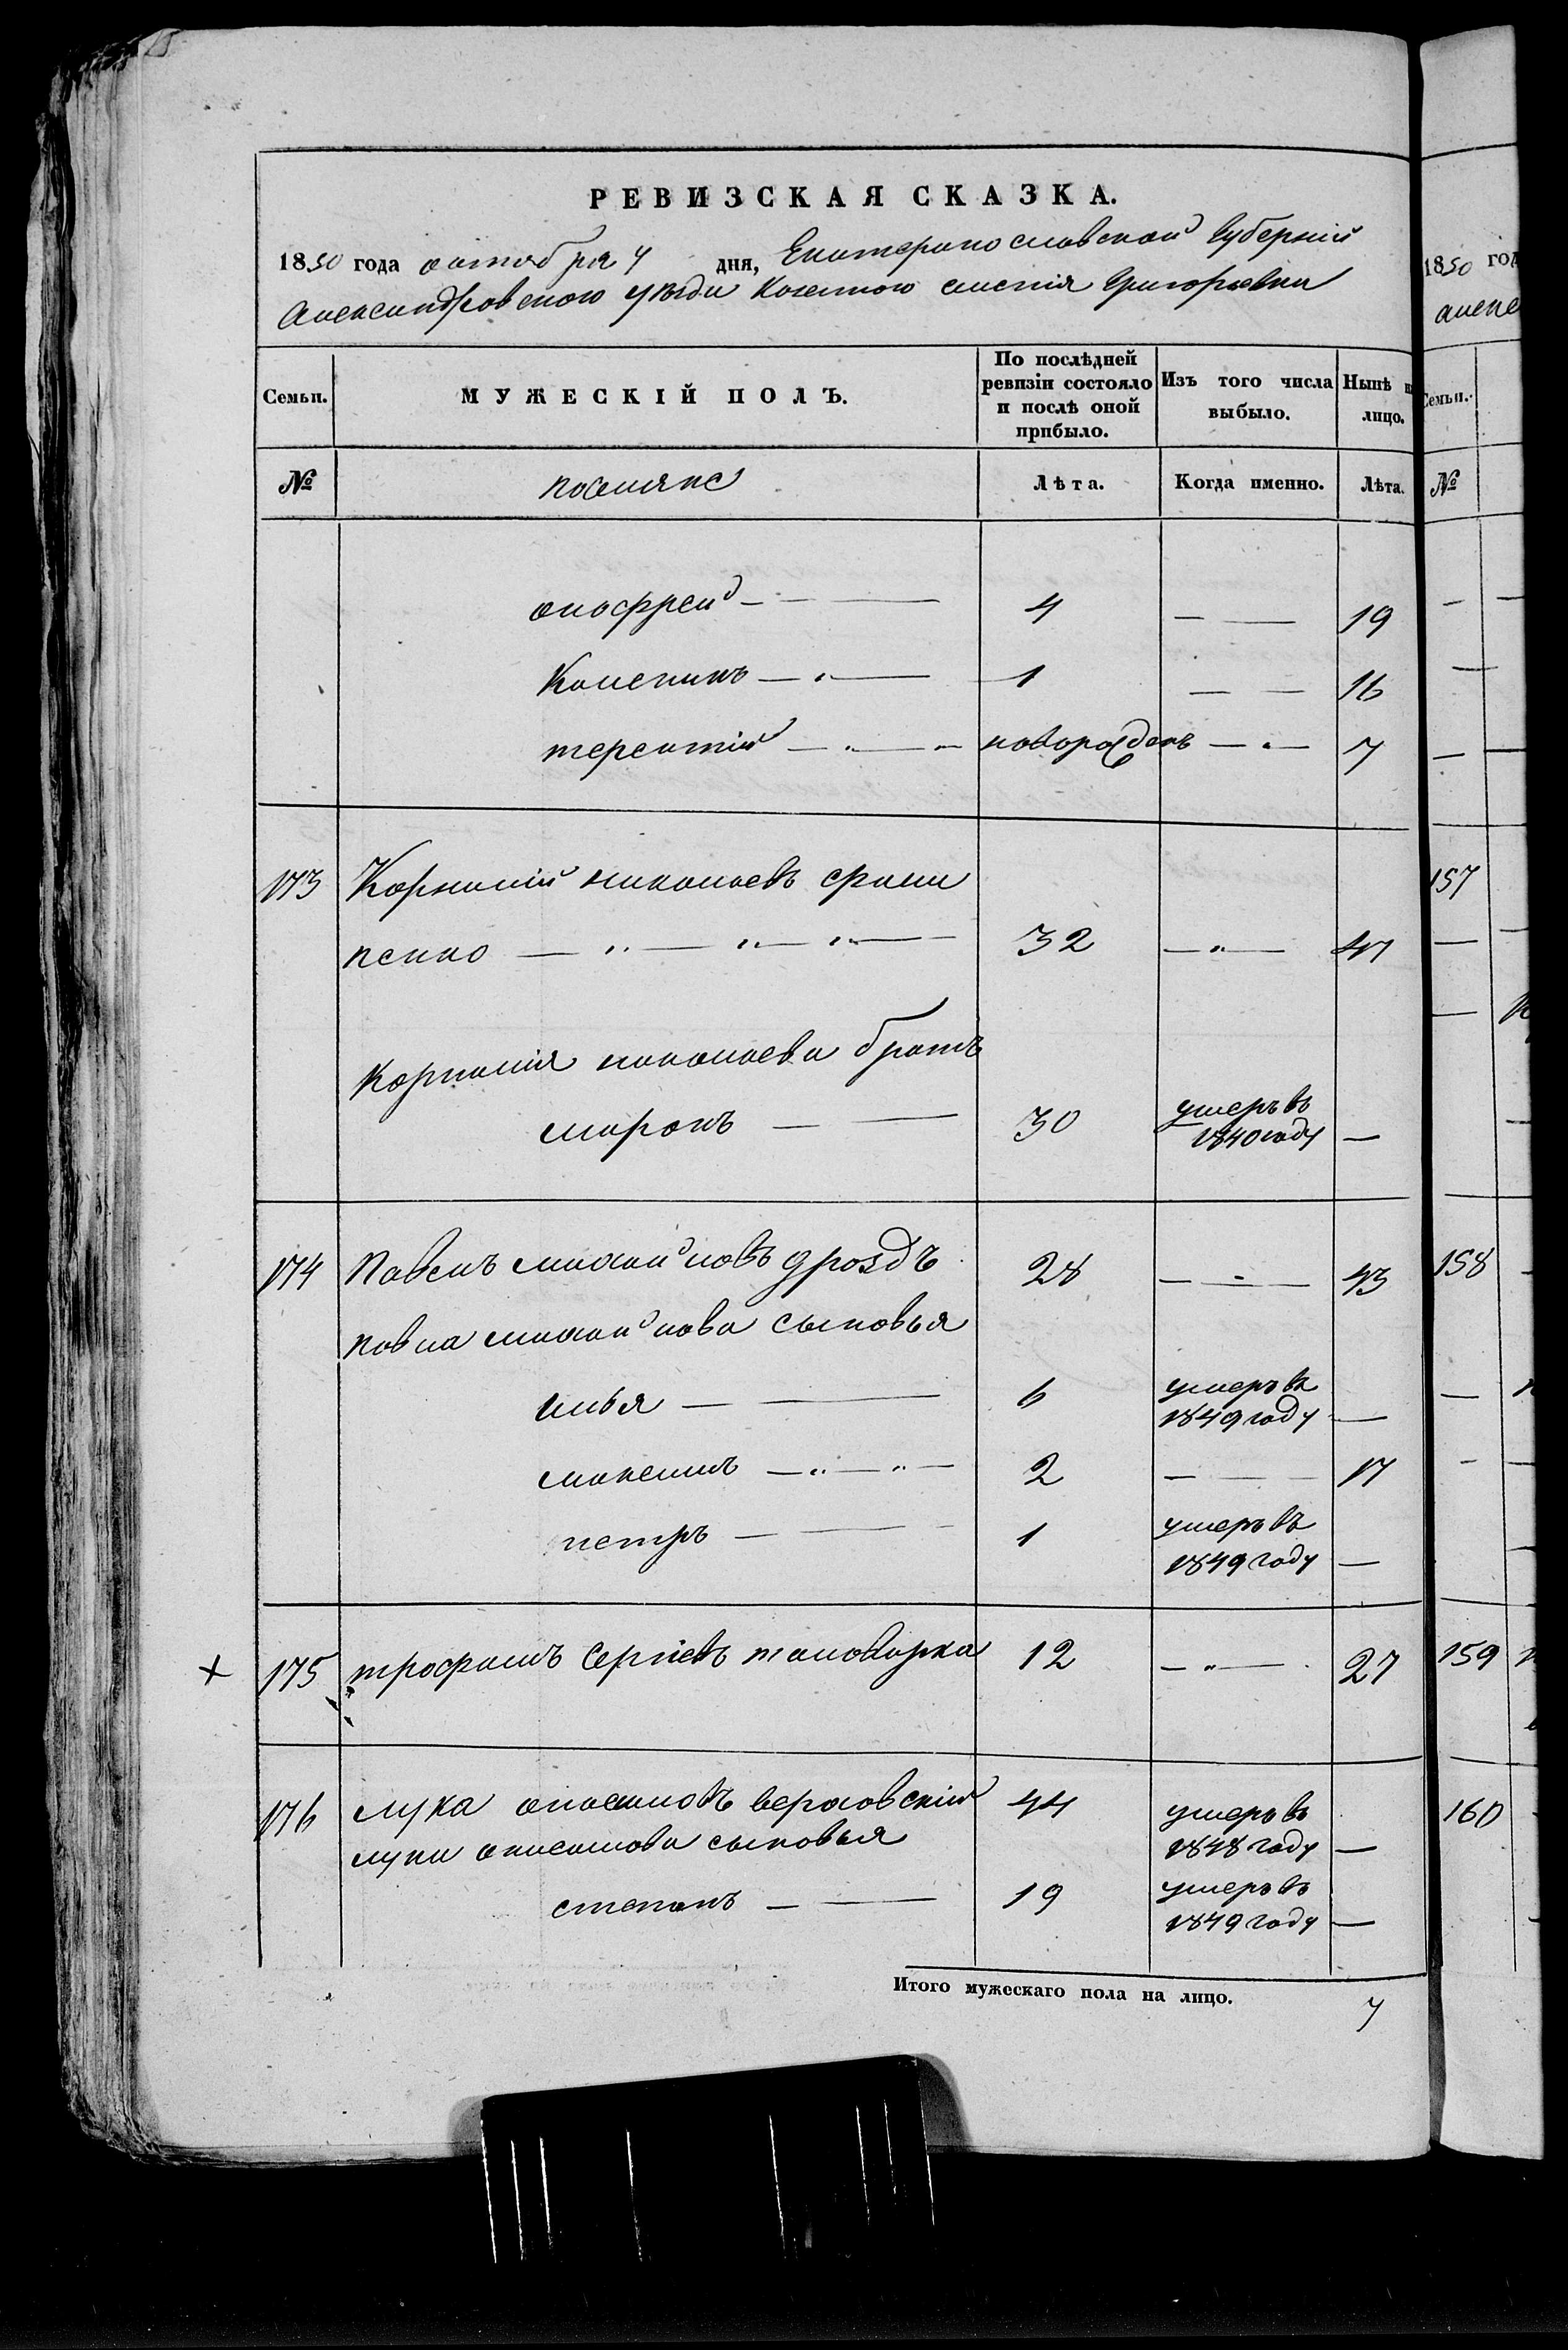 РЕВИЗСКАЯ СКАЗКА.
1850 года октября 4 дня, Екатеринославской Губерніи
Александровского уѣзда Казенного селенія Григоровки
Семьи. МУЖЕСКІЙ ПОЛЪ. По послѣдней ревизіи состояло и послѣ оной прибыло. Изъ того числа выбыло. Нынѣ н лицо.
№ поселяне Лѣта. Когда именно. Лѣта.
онофрей — 4 — 19
Каленикъ — 1 — 16
терентій — новорожденъ — 7
173 Корнилій николаевъ
пенко — 32 — 47
Корнилія николаева братъ
миронъ — 30 умеръ въ 1840 году —
174 Павелъ михайловъ дроздъ 28 — 43
павла михайлова сыновья
илья — 6 умеръ въ 1849 году —
максимъ — 2 — 17
петръ — 1 умеръ въ 1849 году —
+ 175 трофимъ Сергіевъ 12 — 27
176 лука 44 умеръ въ 1848 году —
луки сыновья
степанъ — 19 умеръ въ 1849 году —
Итого мужескаго пола на лицо. 7
1850 год
алекс
Семьи.
№
157
158
159
160